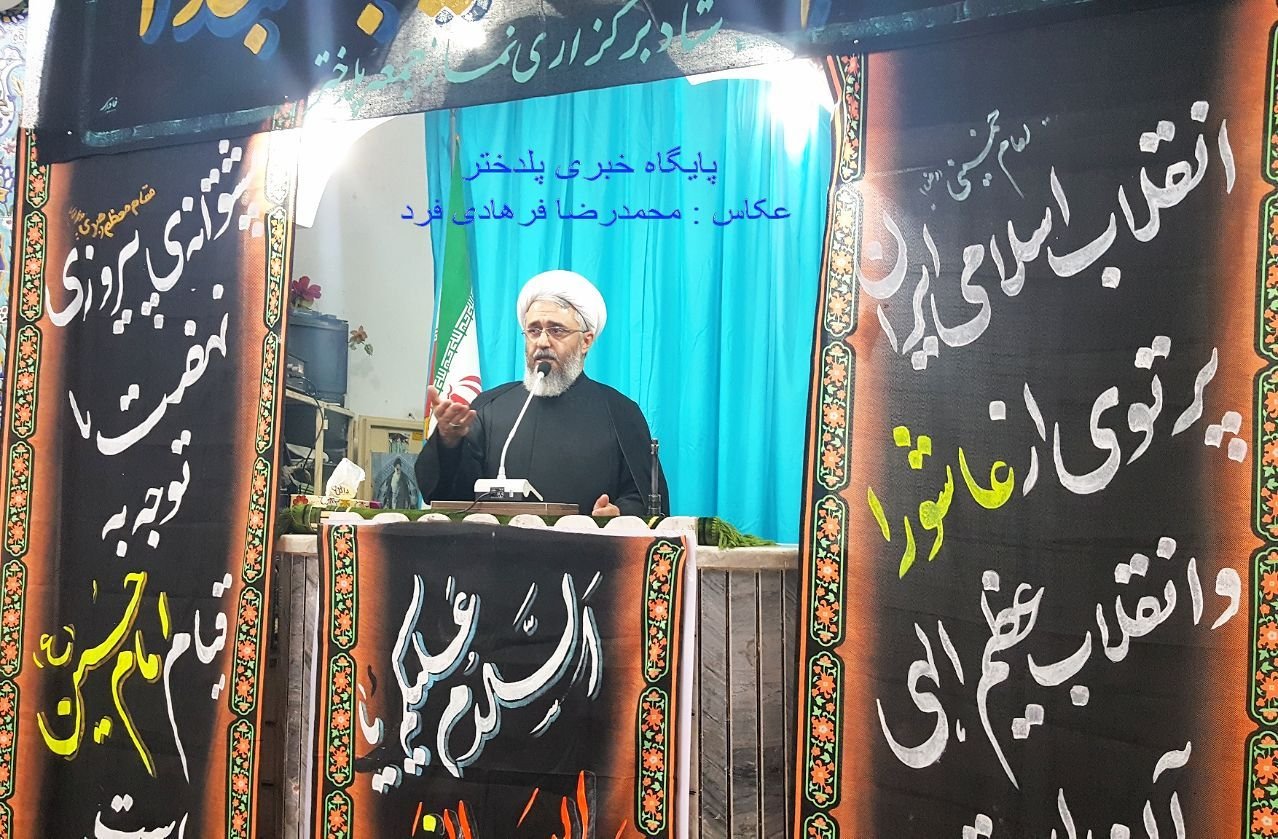 ستاد برگزاری نماز جمعه پلدختر
پایگاه خبری پلدختر
عکاس : محمدرضا فرهادی فرد
امام خمینی
انقلاب اسلامی ایران
پرتوی از عاشورا
و انقلاب عظیم الهی
مقام معظم رهبری
پشتوانه‌ی پیروزی
نهضت ما
توجه به
قیام امام حسین (ع)
است
السَّلامُ عَلیکَ یا